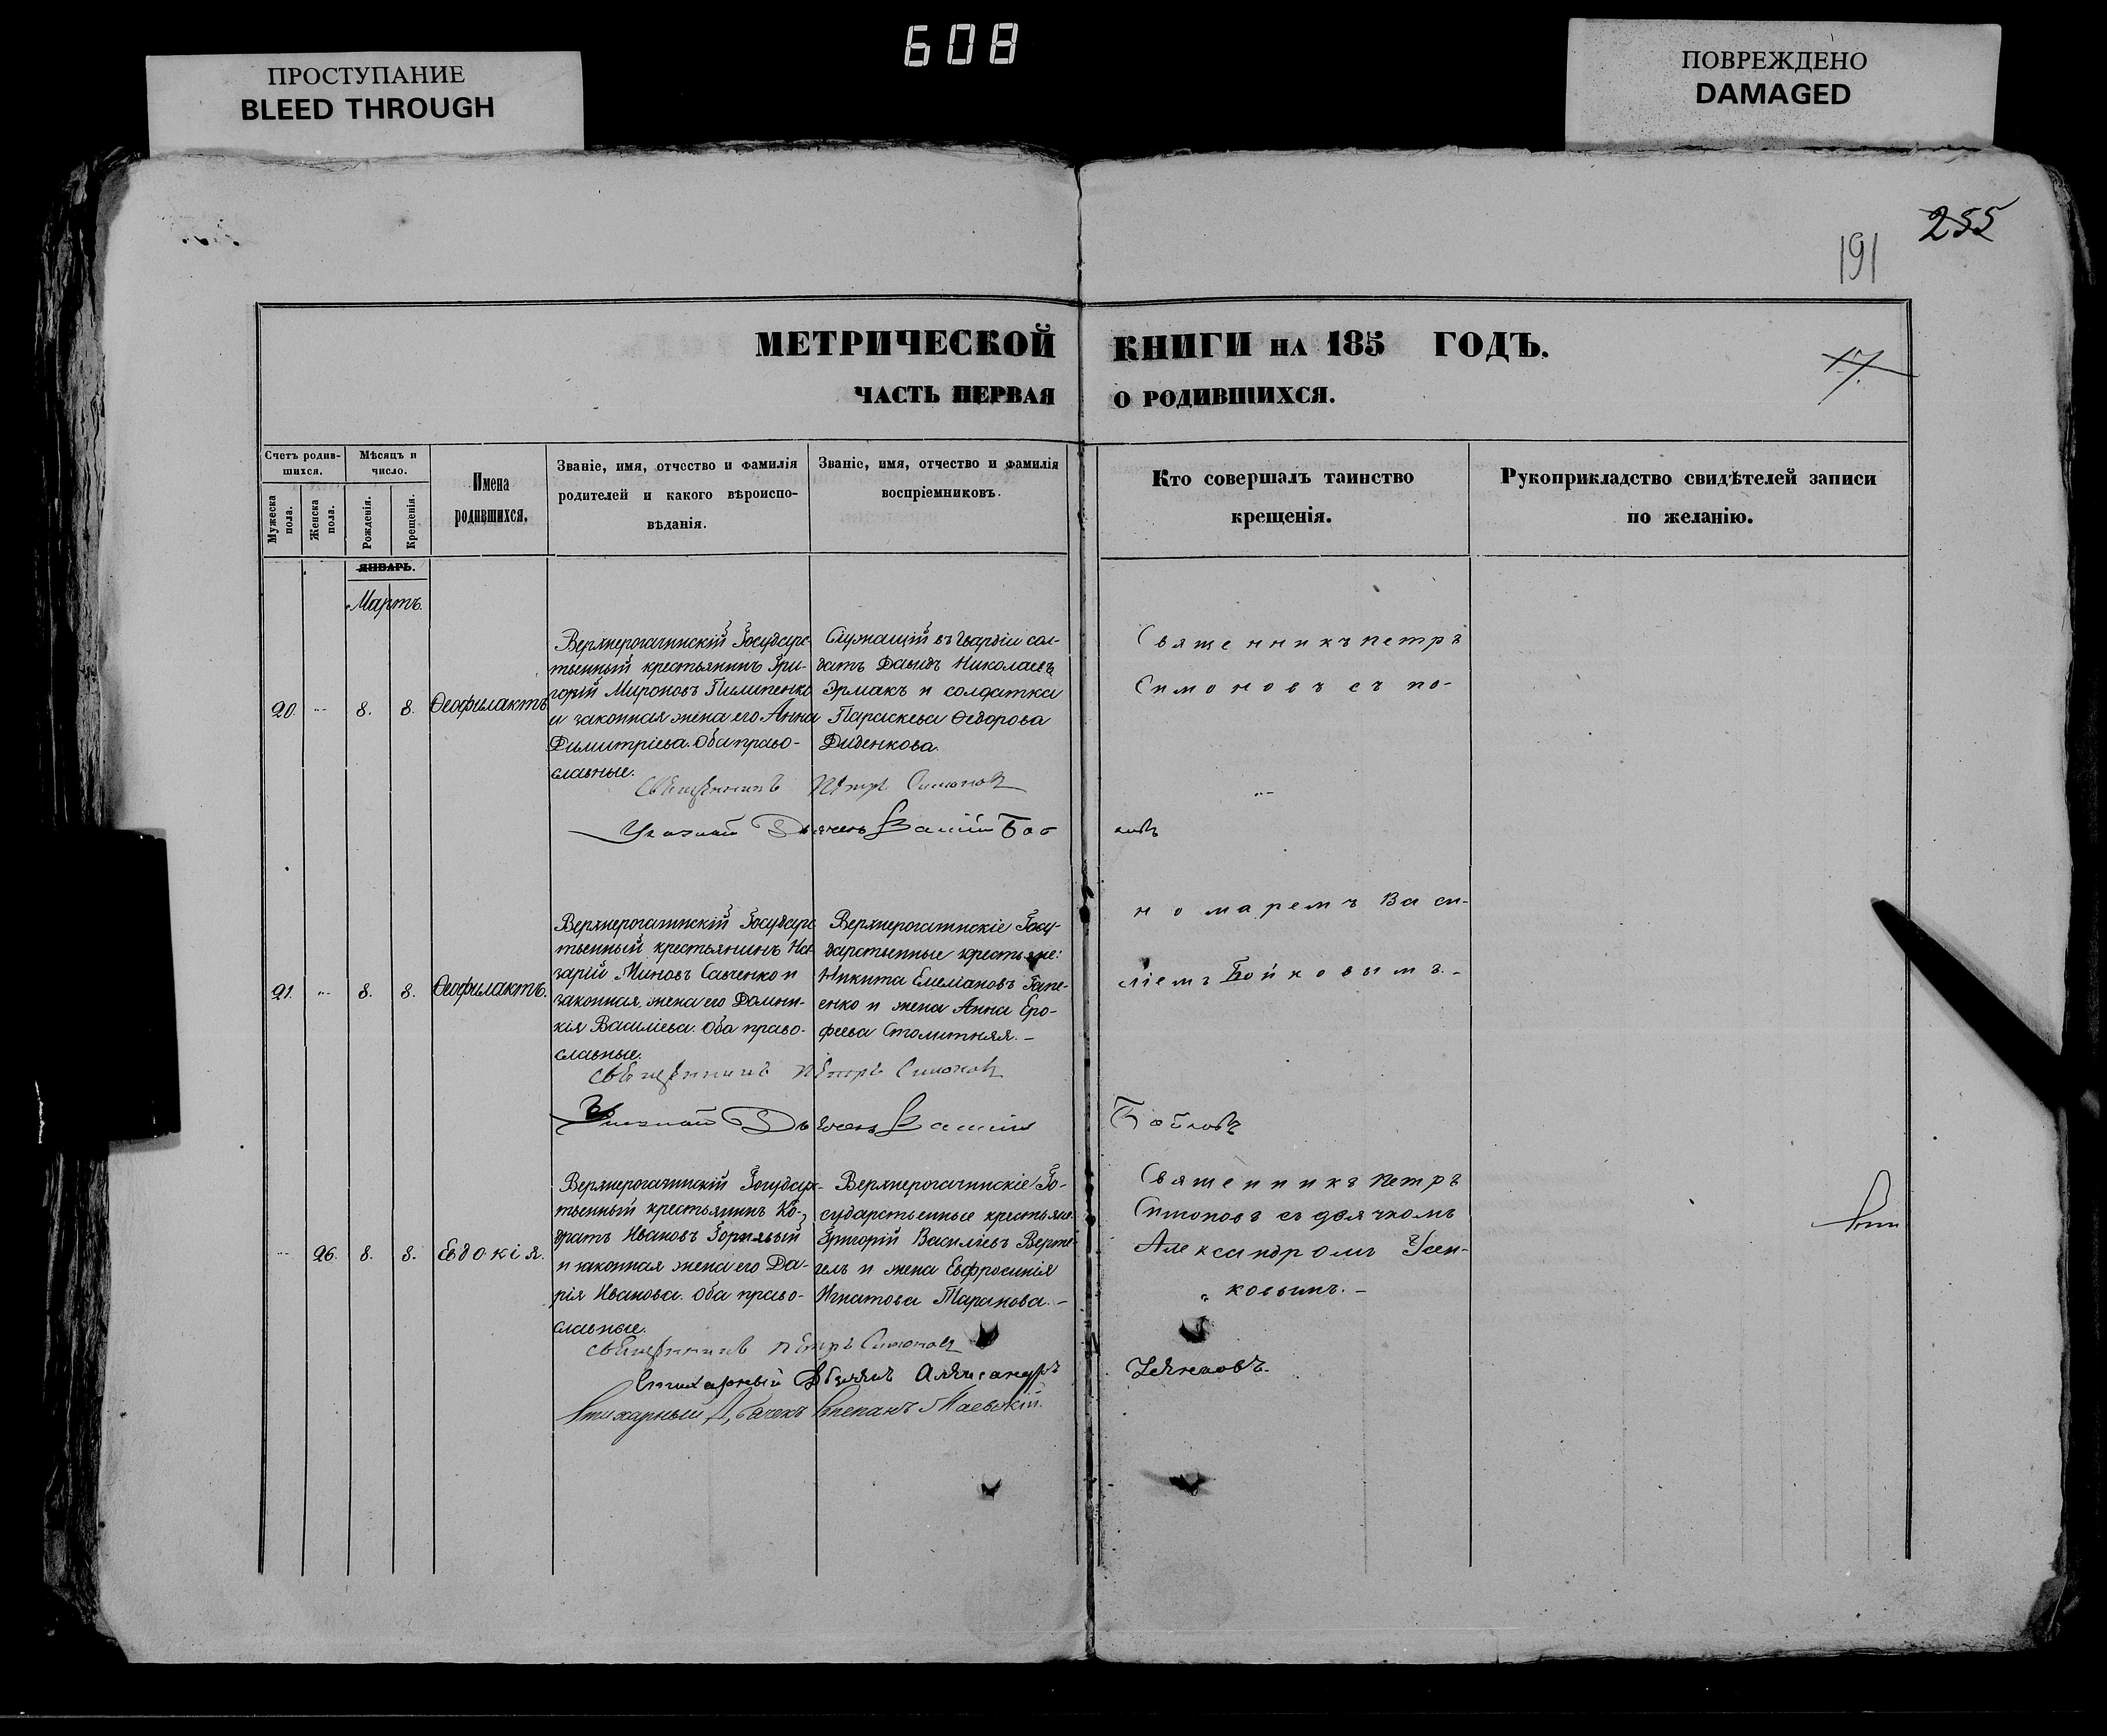 608
ПРОСТУПАНИЕ
BLEED THROUGH
ПОВРЕЖДЕНО
DAMAGED
255
191
МЕТРИЧЕСКОЙ КНИГИ НА 185 ГОДЪ.
17.
ЧАСТЬ ПЕРВАЯ О РОДИВШИХСЯ.
Счетъ родив-
шихся.
Мужеска пола.
Женска пола.
Мѣсяцъ и
число.
Рожденія.
Крещенія.
Имена
родившихся.
Званіе, имя, отчество и фамилія
родителей и какого вѣроиспо-
вѣданія.
Званіе, имя, отчество и фамилія
воспріемниковъ.
Кто совершалъ таинство
крещенія.
Рукоприкладство свидѣтелей записи
по желанію.
ЯНВАРЬ.
Мартъ.
20.
8.
8.
Ѳеофилактъ
Верхнерогачинскій Государс
твенный крестьянинъ Гри-
горій Мироновъ Пилипенко
и законная жена его Анна
Димитріева. Оба право-
славные.
Служащій въ Гвардіи сол-
датъ Давидъ Николаевъ
Ермакъ и солдатка
Параскева Ѳедорова
Диденкова.
Священникъ Петръ
Симоновъ съ по-
Священникъ Петръ Симоновъ
Указной Дьячекъ Василій Бой
ковъ
21.
8.
8.
Ѳеофилактъ.
Верхнерогачинскій Государс
твенный крестьянинъ На
зарій Миновъ Савченко и
законная жена его Домни-
кія Василіева. Оба право-
славные.
Верхнерогачинскіе Госу-
дарственные крестьяне:
Никита Емеліановъ Гапе-
енко и жена Анна Еро-
феева Столитняя. -
номаремъ Васи-
ліемъ Бойковымъ. -
Священникъ Петръ Симоновъ
Указной Дьячекъ Василій
Бойковъ
26.
8.
8.
Евдокія.
Верхнерогачинскій Государ-
твенный крестьянинъ Ко-
дратъ Ивановъ Горпявый
и законная жена его Да-
рія Иванова. Оба право-
славные.
Верхнерогачинскіе Го-
сударственные крестьяне
Григорій Василіевъ Верте-
гелъ и жена Евфросинія
Игнатова Таранова. -
Священникъ Петръ
Симоновъ съ дьячкомъ
Александромъ Усен-
ковымъ. -
Священникъ Петръ Симоновъ
Стихарный Дьячекъ Александръ
Усенковъ.
Стихарный Дьячекъ Степанъ Маевскій.